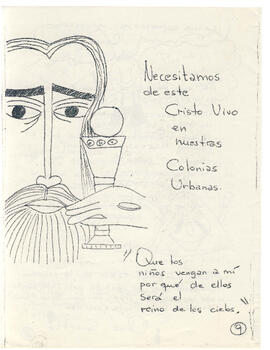 Necesitamos
de este
Cristo Vivo
en
nuestras
Colonias
Urbanas.
"Que los
niños vengan a mí
por qué de ellos
será el
reino de los cielos."
9